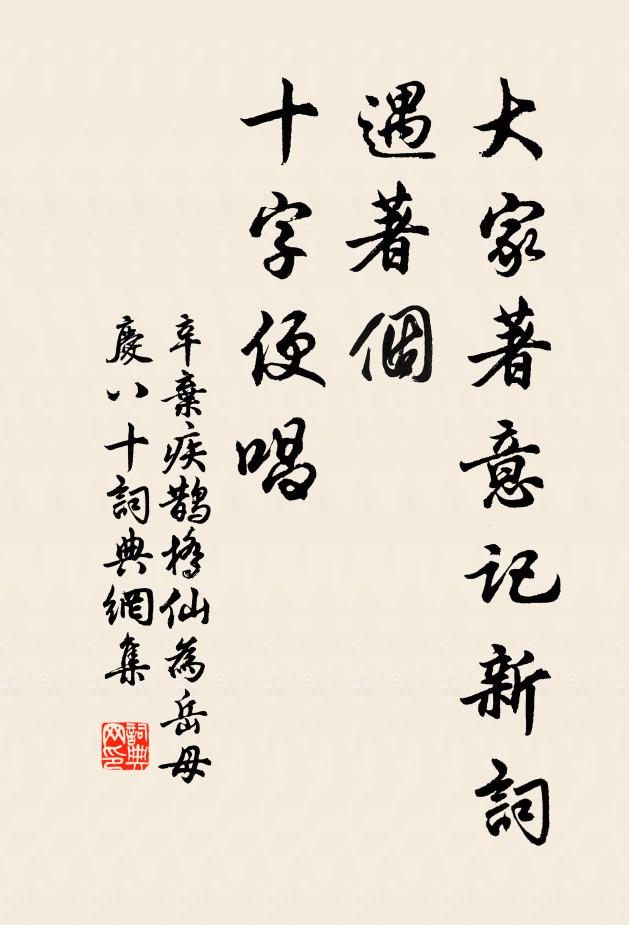 大家著意記新詞
遇著個
十字便唱
辛棄疾鵲橋仙為岳母
慶八十詞典網集
詞典
网印